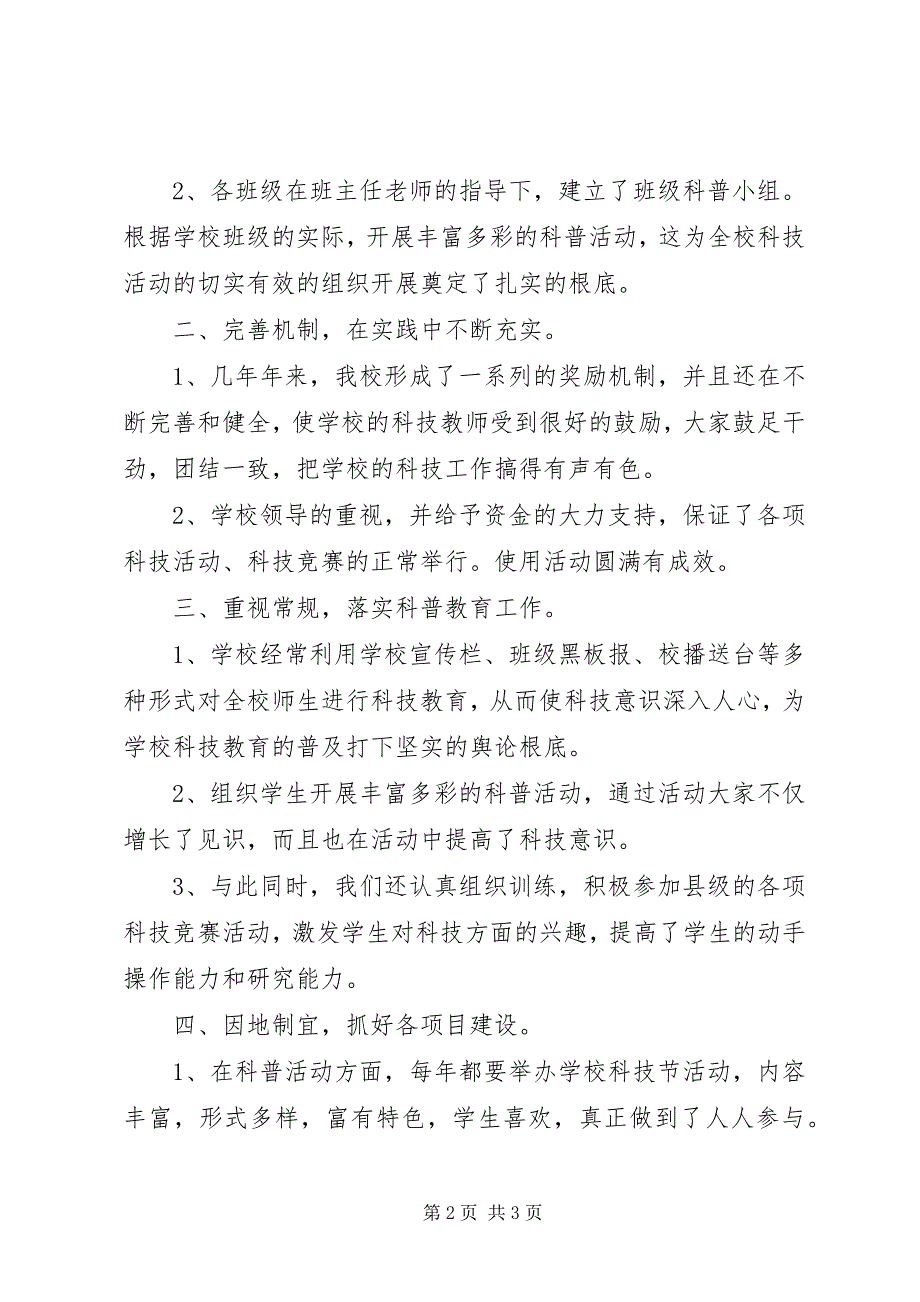 2、各班级在班主任老师的指导下，建立了班级科普小组。
根据学校班级的实际，开展丰富多彩的科普活动，这为全校科技
活动的切实有效的组织开展奠定了扎实的根底。
二、完善机制，在实践中不断充实。
1、几年年来，我校形成了一系列的奖励机制，并且还在不
断完善和健全，使学校的科技教师受到很好的鼓励，大家鼓足干
劲，团结一致，把学校的科技工作搞得有声有色。
2、学校领导的重视，并给予资金的大力支持，保证了各项
科技活动、科技竞赛的正常举行。使用活动圆满有成效。
三、重视常规，落实科普教育工作。
1、学校经常利用学校宣传栏、班级黑板报、校播送台等多
种形式对全校师生进行科技教育，从而使科技意识深入人心，为
学校科技教育的普及打下坚实的舆论根底。
2、组织学生开展丰富多彩的科普活动，通过活动大家不仅
增长了见识，而且也在活动中提高了科技意识。
3、与此同时，我们还认真组织训练，积极参加县级的各项
科技竞赛活动，激发学生对科技方面的兴趣，提高了学生的动手
操作能力和研究能力。
四、因地制宜，抓好各项目建设。
1、在科普活动方面，每年都要举办学校科技节活动，内容
丰富，形式多样，富有特色，学生喜欢，真正做到了人人参与。
第 2 页 共 3 页